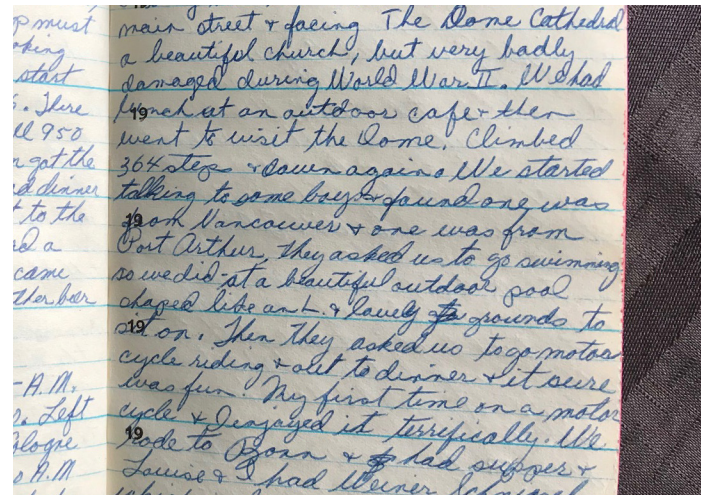 p must
oking
start
s. There
ll 950
n got the
nd dinner
t to the
nd a
came
ther beer
- A.M.
Left
ologne
A.M
main street & facing The Dome Cathedral
a beautiful church, but very badly
damaged during World War II. We had
19
lunch at an outdoor cafe & then
went to visit the Dome. Climbed
364 steps & down again. We started
talking to some boys & found one was
19
from Vancouver & one was from
Port Arthur, they asked us to go swimming
so we did - at a beautiful outdoor pool
shaped like an L & lovely grounds to
19
sit on. Then they asked us to go motor
cycle riding & out to dinner & it sure
was fun. My first time on a motor
cycle & I enjoyed it terrifically. We
19
rode to Bonn & had supper &
Louise & I had Weiner Schnitzel